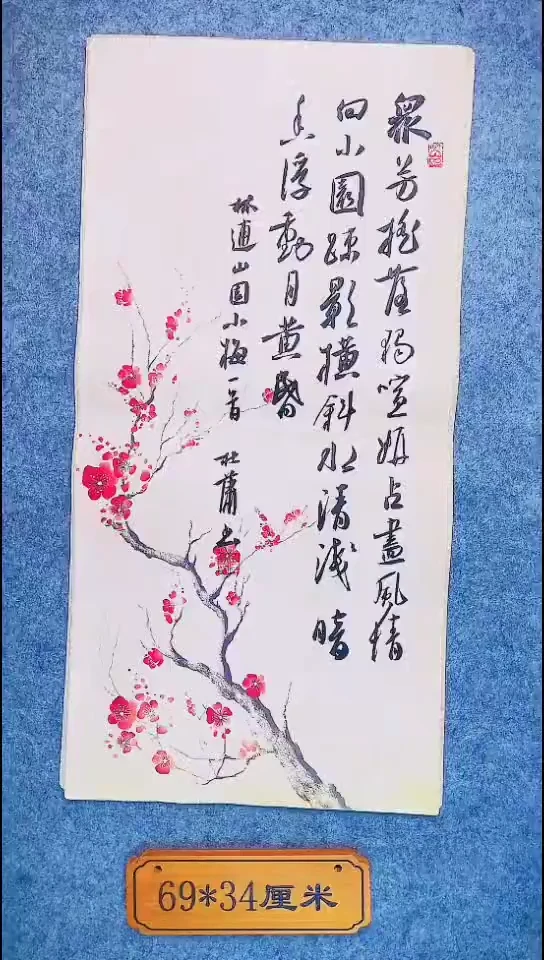 眾芳搖落獨暄妍占盡風情
向小園疏影橫斜水清淺暗
香浮動月黃昏
林逋山园小梅一首 杜蕭书
69*34厘米